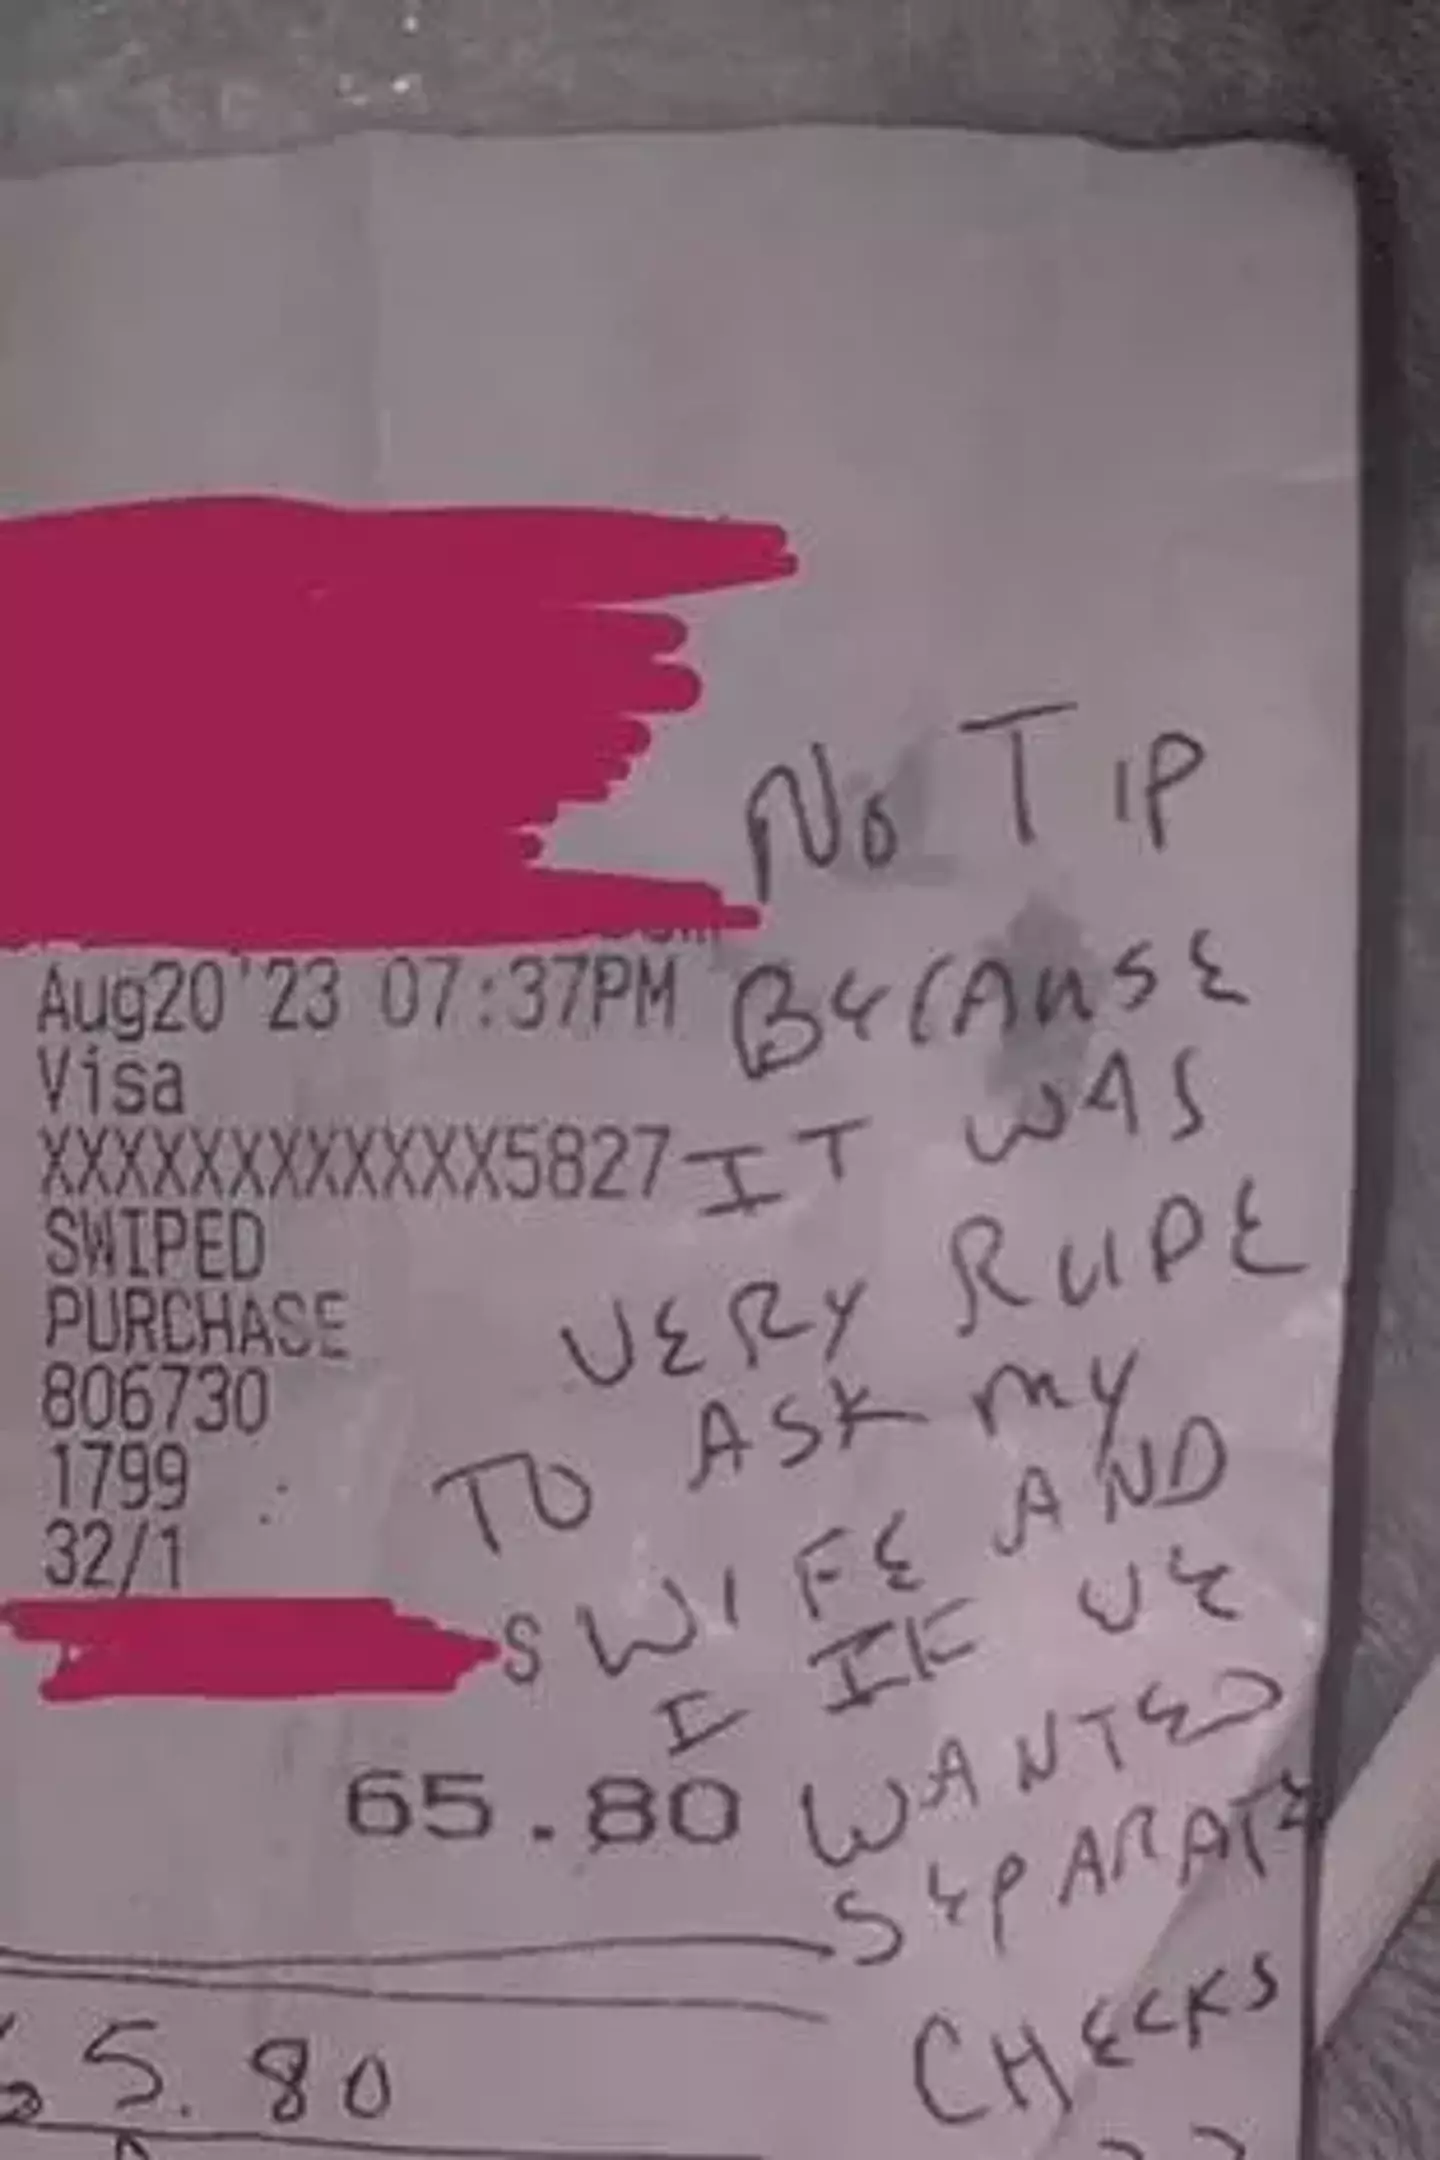 No TIP
Aug20'23 07:37PM BECAUSE
Visa
XXXXXXXXXXXX5827 IT WAS
SWIPED VERY RUDE
PURCHASE
806730 TO ASK MY
1799
32/1
S WIFE AND
I IF WE
65.80 WANTED
SEPARATE
5.80 CHECKS